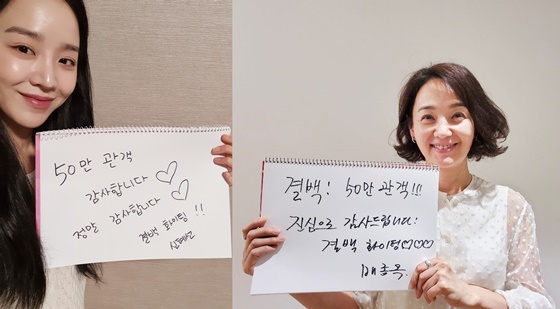 50만 관객
감사합니다 ♡
정말 감사합니다 ♡
결백 화이팅 !!
신혜선
결백! 50만 관객!!!
진심으로 감사드립니다!
결백 화이팅♡♡♡
배종옥.